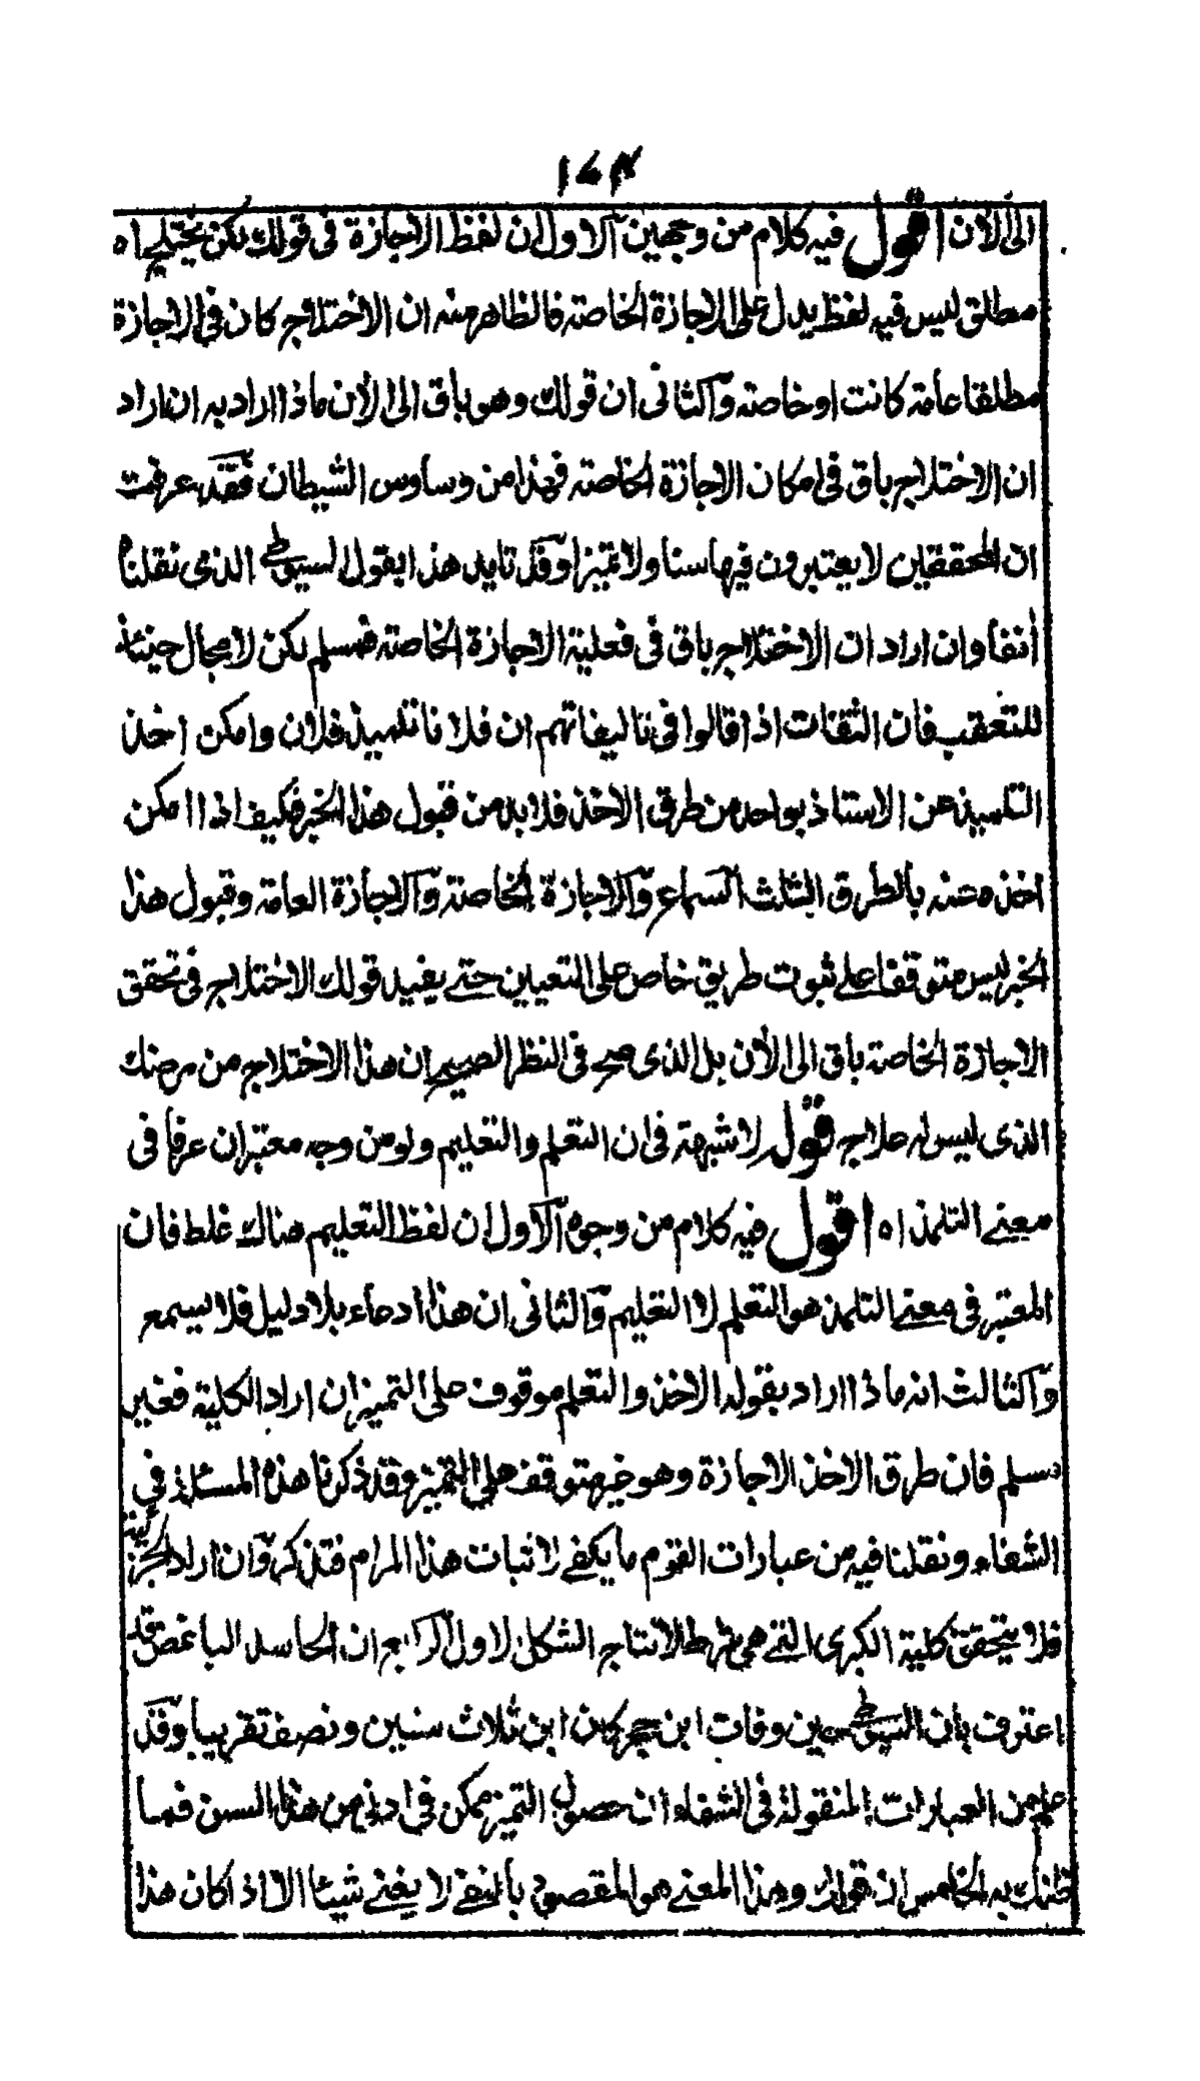 ١٧٣
الى الأن اقول فيه كلام من وجهين الاول ان لفظ الاجازة فى قولك لكن يختلج اه
مطلق ليس فيه لفظ يدل على الاجازة الخاصة فالظاهر منه ان الاختلاج كان فى الاجازة
مطلقا عامة كانت او خاصة والثانى ان قولك وهو باق الى الأن ماذا اراد به ان اراد
ان الاختلاج باق فى امكان الاجازة الخاصة فهذا من وساوس الشيطان فقد عرفت
ان المحققين لا يعتبرون فيها سنا ولا تميزا وقد تايد هذا بقول السيوطى الذى نقلناه
أنفا وان اراد ان الاختلاج باق فى فعلية الاجازة الخاصة فمسلم لكن لا مجال حينئذ
للتعقب فان الثقات اذا قالوا فى تاليفاتهم ان فلانا تلميذ فلان وامكن اخذ
التلميذ عن الاستاذ بواحد من طرق الاخذ فلا بد من قبول هذا الخبر فكيف اذا امكن
اخذه عنه بالطرق الثلث السماع والاجازة الخاصة والاجازة العامة وقبول هذا
الخبر ليس متوقفا على ثبوت طريق خاص على التعيين حتى يفيد قولك الاختلاج فى تحقق
الاجازة الخاصة باق الى الأن بل الذى صح فى النظر الصحيح ان هذا الاختلاج من مرضك
الذى ليس له علاج قوله لا شبهة فى ان التعلم والتعليم ولو من وجه معتبران عرفا فى
معنى التلمذ اه اقول فيه كلام من وجوه الاول ان لفظ التعليم هناك غلط فان
المعتبر فى معنى التلمذ هو التعلم لا التعليم والثانى ان هذا ادعاء بلا دليل فلا يسمع
والثالث انه ماذا اراد بقوله الاخذ والتعلم موقوف على التميز ان اراد الكلية فغير
مسلم فان طرق الاخذ الاجازة وهو غير متوقف على التميز وقد ذكرنا هذه المسئلة فى
الشفاء ونقلنا فيه من عبارات القوم ما يكفى لاثبات هذا المرام فتذكر وان اراد الجزئية
فلا يتحقق كلية الكبرى التى هى شرط لانتاج الشكل الاول الرابع ان الحاسد الباغض قد
اعترف بان السيوطى حين وفات ابن حجر كان ابن ثلاث سنين ونصف تقريبا وقد
علم من العبارات المنقولة فى الشفاء ان حصول التميز ممكن فى ادنى من هذا السن فما
ظنك به الخامس ان قولك وهذا المعنى هو المقصود بالنفى لا يغنى شيئا الا اذا كان هذا